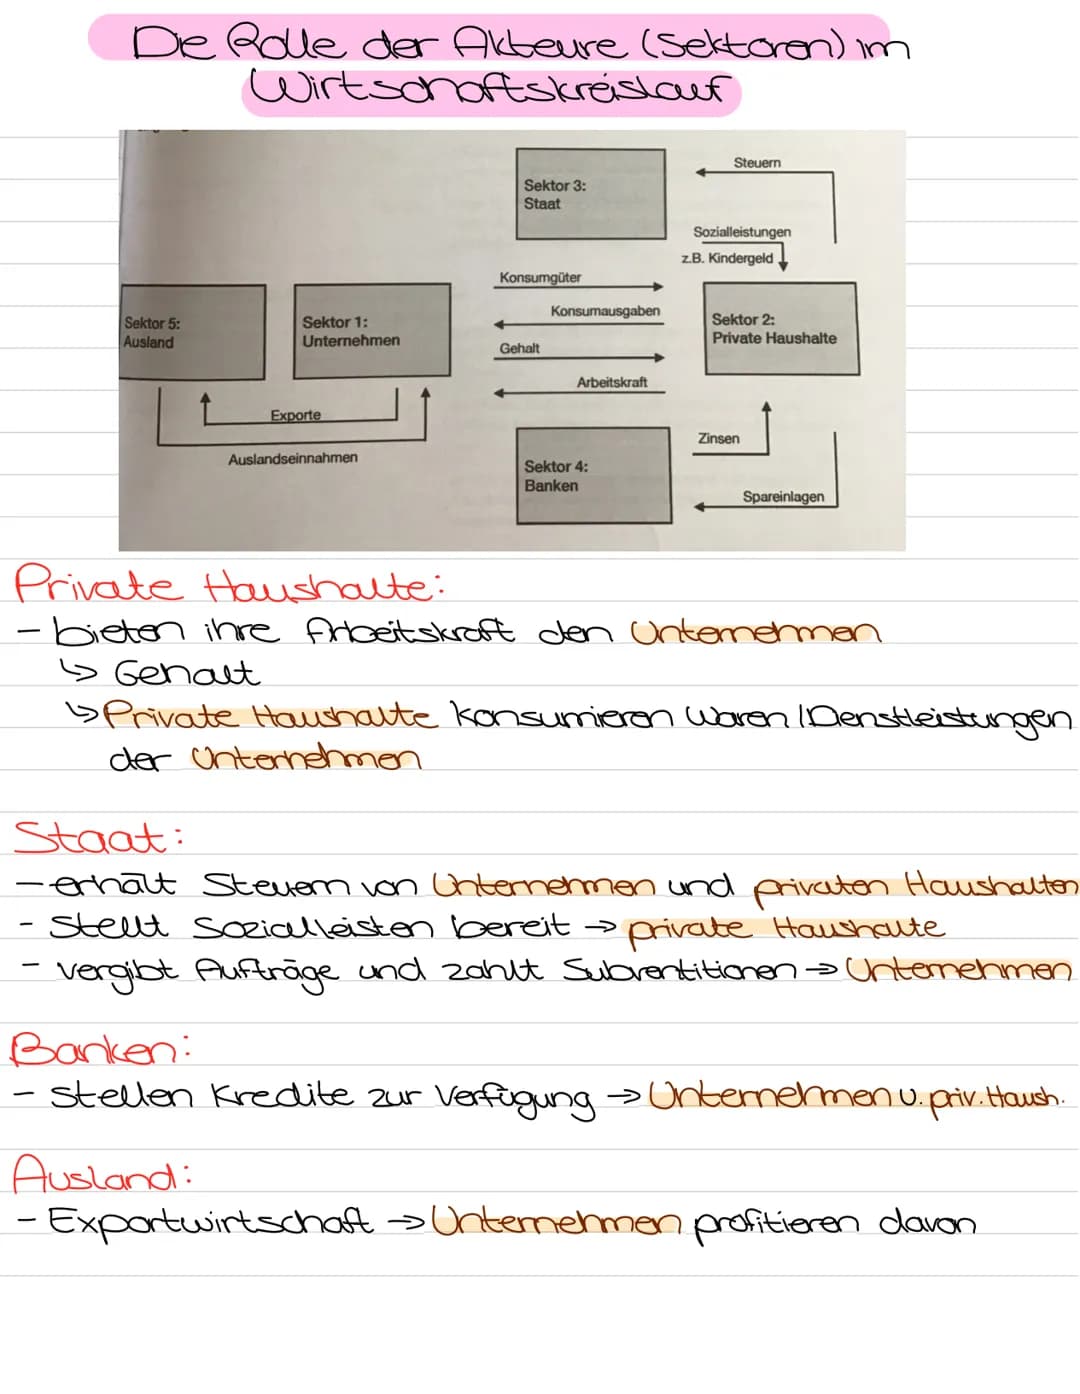 Die Rolle der Akteure (Sektoren) im
Wirtschaftskreislauf
Steuern
Sektor 3:
Staat
Sozialleistungen
z.B. Kindergeld
Konsumgüter
Konsumausgaben
Sektor 5:
Ausland
Sektor 1:
Unternehmen
Sektor 2:
Private Haushalte
Gehalt
Arbeitskraft
Exporte
Auslandseinnahmen
Zinsen
Sektor 4:
Banken
Spareinlagen
Private Haushalte:
- bieten ihre Arbeitskraft den Unternehmen
↳ Gehalt
↳ Private Haushalte konsumieren Waren/Dienstleistungen
der Unternehmen
Staat:
- erhält Steuern von Unternehmen und privaten Haushalten
- stellt Sozialleisten bereit → private Haushalte
- vergibt Aufträge und zahlt Subventitionen → Unternehmen
Banken:
- stellen Kredite zur Verfügung → Unternehmen u. priv. Haush.
Ausland:
- Exportwirtschaft → Unternehmen profitieren davon